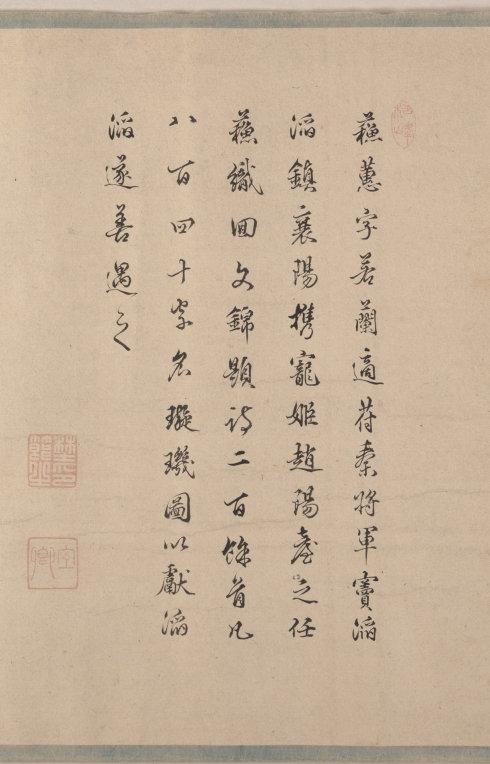 蘓蕙字若蘭適苻秦將軍竇滔
滔鎮襄陽携寵姬趙陽臺之任
蘓織回文錦題詩二百餘首凡
八百四十字名璇璣圖以獻滔
滔遂善遇之